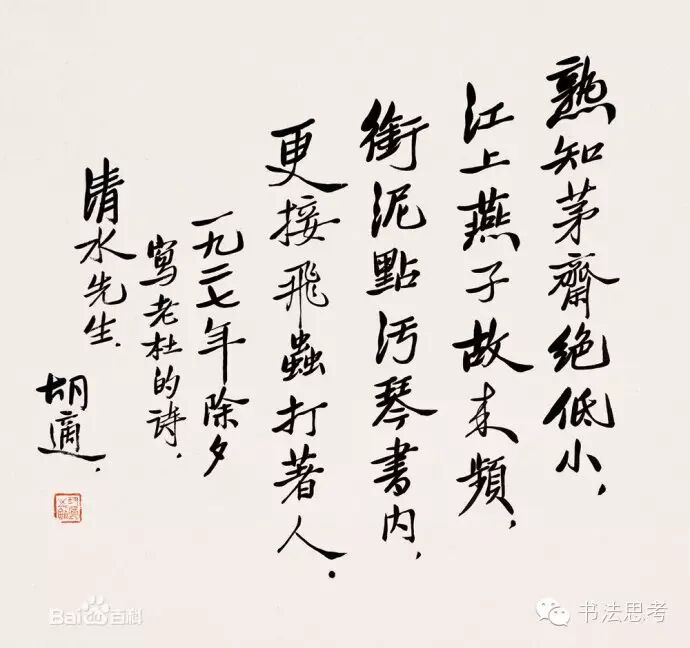 熟知茅齋絶低小，
江上燕子故来頻，
銜泥點汚琴書内，
更接飛蟲打著人．
一九二七年除夕
寫老杜的詩．
清水先生．
胡適．
Bai百科
书法思考